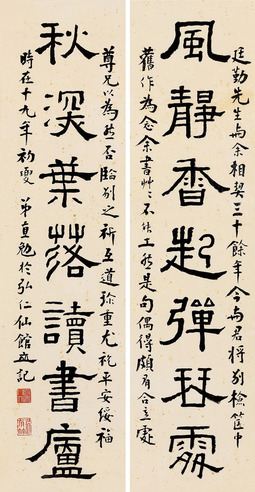 廷勤先生與余相契三十餘年今與君將別檢篋中
風靜香起彈琴
舊作為念余書艸艸不能工然是句偶得頗有合意處
尊兄以為然否臨別之祈互道珍重尤祝平安綏福
秋深葉落讀書廬
時在十九年初夏 弟直勉於弘仁仙館並記